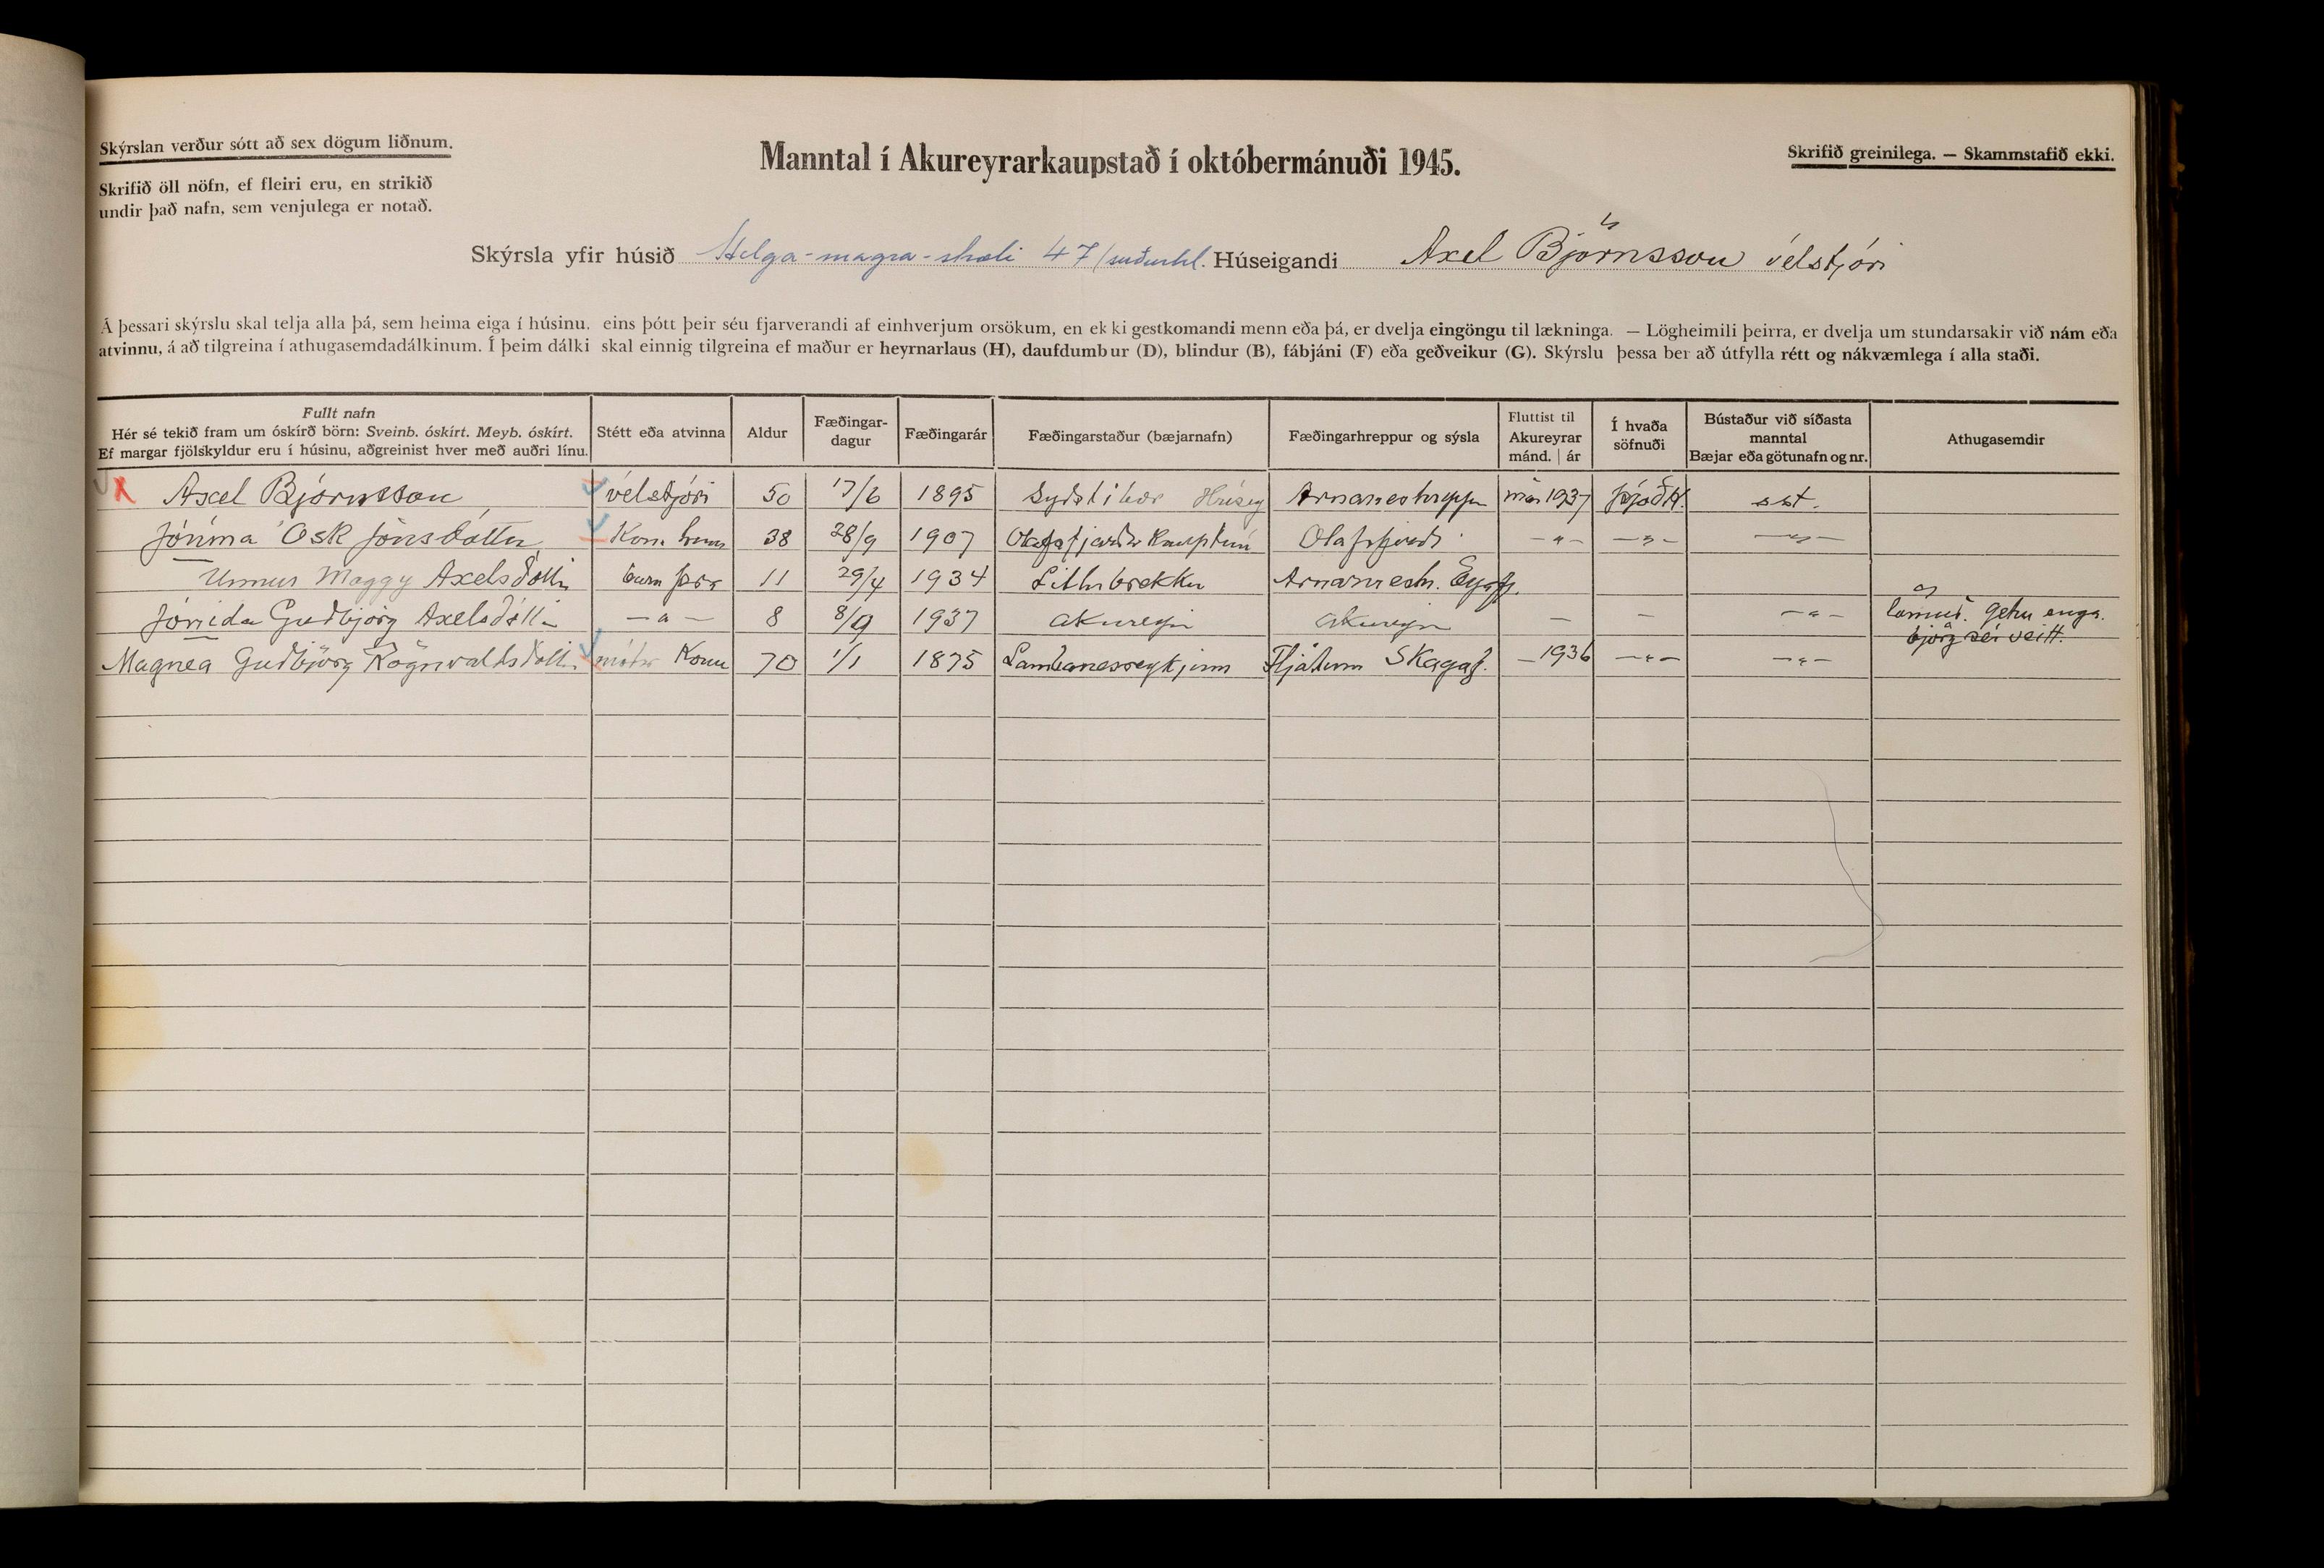 Skýrslan verður sótt að sex dögum liðnum.
Skrifið öll nöfn, ef fleiri eru, en strikið
undir það nafn, sem venjulega er notað.
Manntal í Akureyrarkaupstað í októbermánuði 1945.
Skrifið greinilega. — Skammstafið ekki.
Skýrsla yfir húsið Helga-magra-stræti 47/suðurhl. Húseigandi Axel Björnsson vélstjóri
Á þessari skýrslu skal telja alla þá, sem heima eiga í húsinu, eins þótt þeir séu fjarverandi af einhverjum orsökum, en ekki gestkomandi menn eða þá, er dvelja eingöngu til lækninga. — Lögheimili þeirra, er dvelja um stundarsakir við nám eða
atvinnu, á að tilgreina í athugasemdadálkinum. Í þeim dálki skal einnig tilgreina ef maður er heyrnarlaus (H), daufdumbur (D), blindur (B), fábjáni (F) eða geðveikur (G). Skýrslu þessa ber að útfylla rétt og nákvæmlega í alla staði.
Fullt nafn
Hér sé tekið fram um óskírð börn: Sveinb. óskírt. Meyb. óskírt.
Ef margar fjölskyldur eru í húsinu, aðgreinist hver með auðri línu.
Stétt eða atvinna
Aldur
Fæðingar-
dagur
Fæðingarár
Fæðingarstaður (bæjarnafn)
Fæðingarhreppur og sýsla
Fluttist til
Akureyrar
mánd. | ár
Í hvaða
söfnuði
Bústaður við síðasta
manntal
Bæjar eða götunafn og nr.
Athugasemdir
Axel Björnsson vélstjóri 50 17/6 1895 Arnarneshreppi 1937 Þjóðk. sst.
Jónína Ósk Jónsdóttir Kona hans 38 28/9 1907 Ólafsfjarðar Kauptúni Ólafsfirði -"- -"- -"-
Unnur Maggy Axelsdóttir barn þrr 11 29/4 1934 Litlubrekku Arnarnesh. Eyjafj.
Jónída Guðbjörg Axelsdóttir -"- 8 8/9 1937 Akureyri Akureyri — — -"- lömuð. og getur enga
björg sér veitt.
Magnea Guðbjörg Rögnvaldsdóttir móðir Konu 70 1/1 1875 Lambanesreykjum Fljótum Skagaf. — 1936 -"- -"-